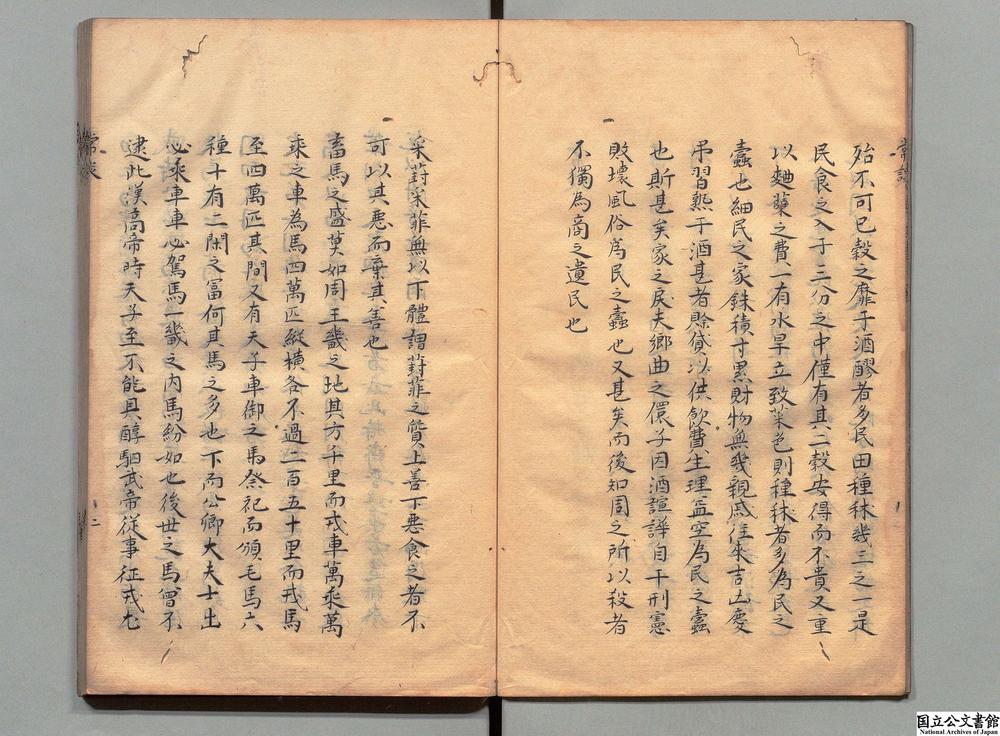 殆不可已穀之靡于酒醪者多民田種秫幾三之一是
民食之入于三分之中僅有其二穀安得而不貴又重
以麯糵之費一有水旱立致菜色則種秫者多為民之
蠹也細民之家銖積寸累財物無幾親戚往來吉凶慶
吊習熟于酒甚者賒貸以供飲費生理益空為民之蠹
也斯甚矣家之戾夫鄉曲之儇子因酒諠譁自干刑憲
敗壞風俗為民之蠹也又甚矣而後知周之所以殺者
不獨為商之遺民也
采葑采菲無以下體謂葑菲之質上善下惡食之者不
可以其惡而棄其善也
畜馬之盛莫如周王畿之地其方千里而戎車萬乘萬
乘之車為馬四萬匹縱橫各不過二百五十里而戎馬
至四萬匹其間又有天子車御之馬祭祀而頒毛馬六
種十有二閑之富何其馬之多也下而公卿大夫士出
必乘車車必駕馬一畿之内馬紛如也後世之馬曾不
逮此漢高帝時天子至不能具醇駟武帝從事征戎尤
常談
二
国立公文書館
National Archives of Japan